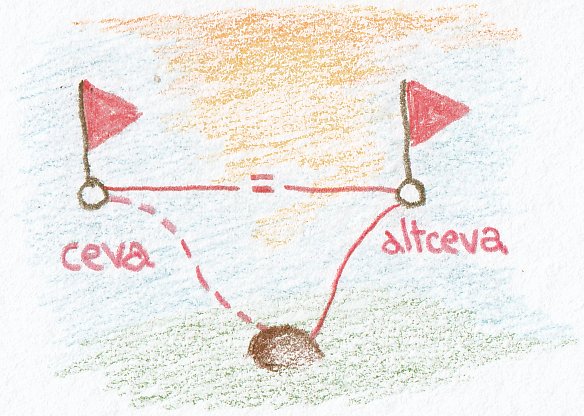 =
ceva
altceva